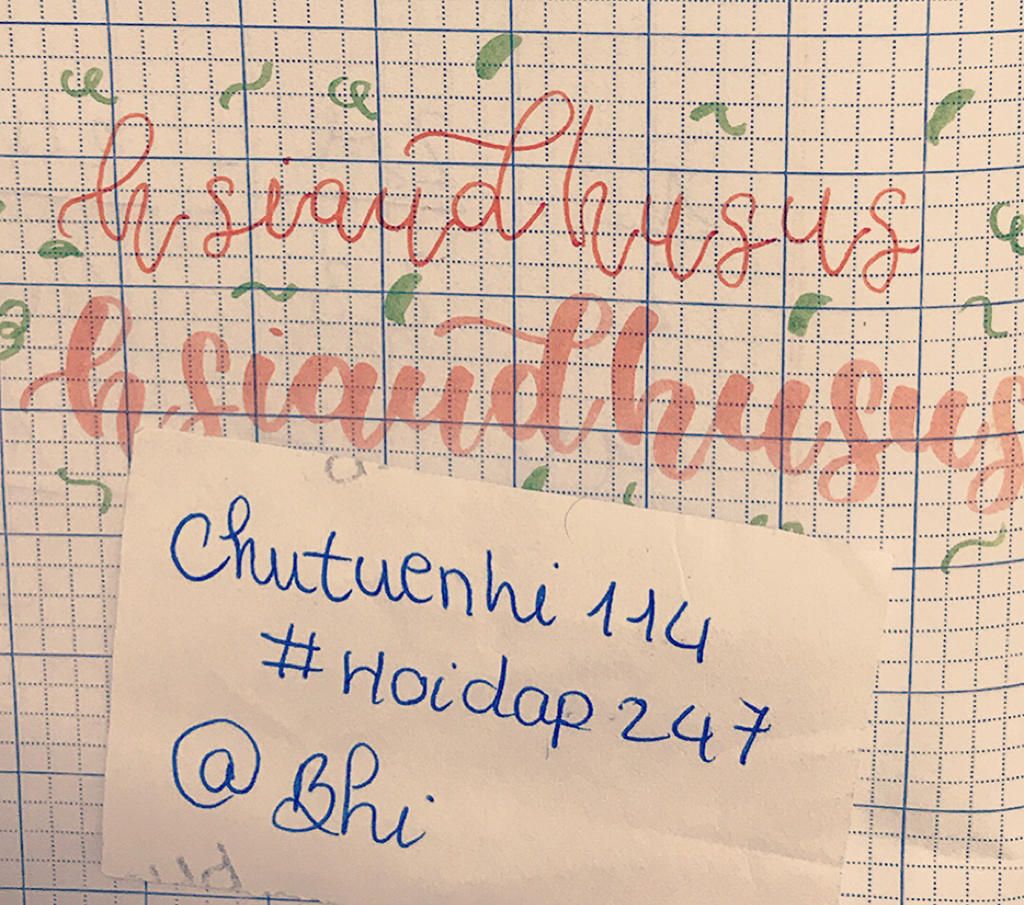 hsiaudhusus
hsiaudhusus
Chutuenhi 114
#Hoidap247
@Bhi